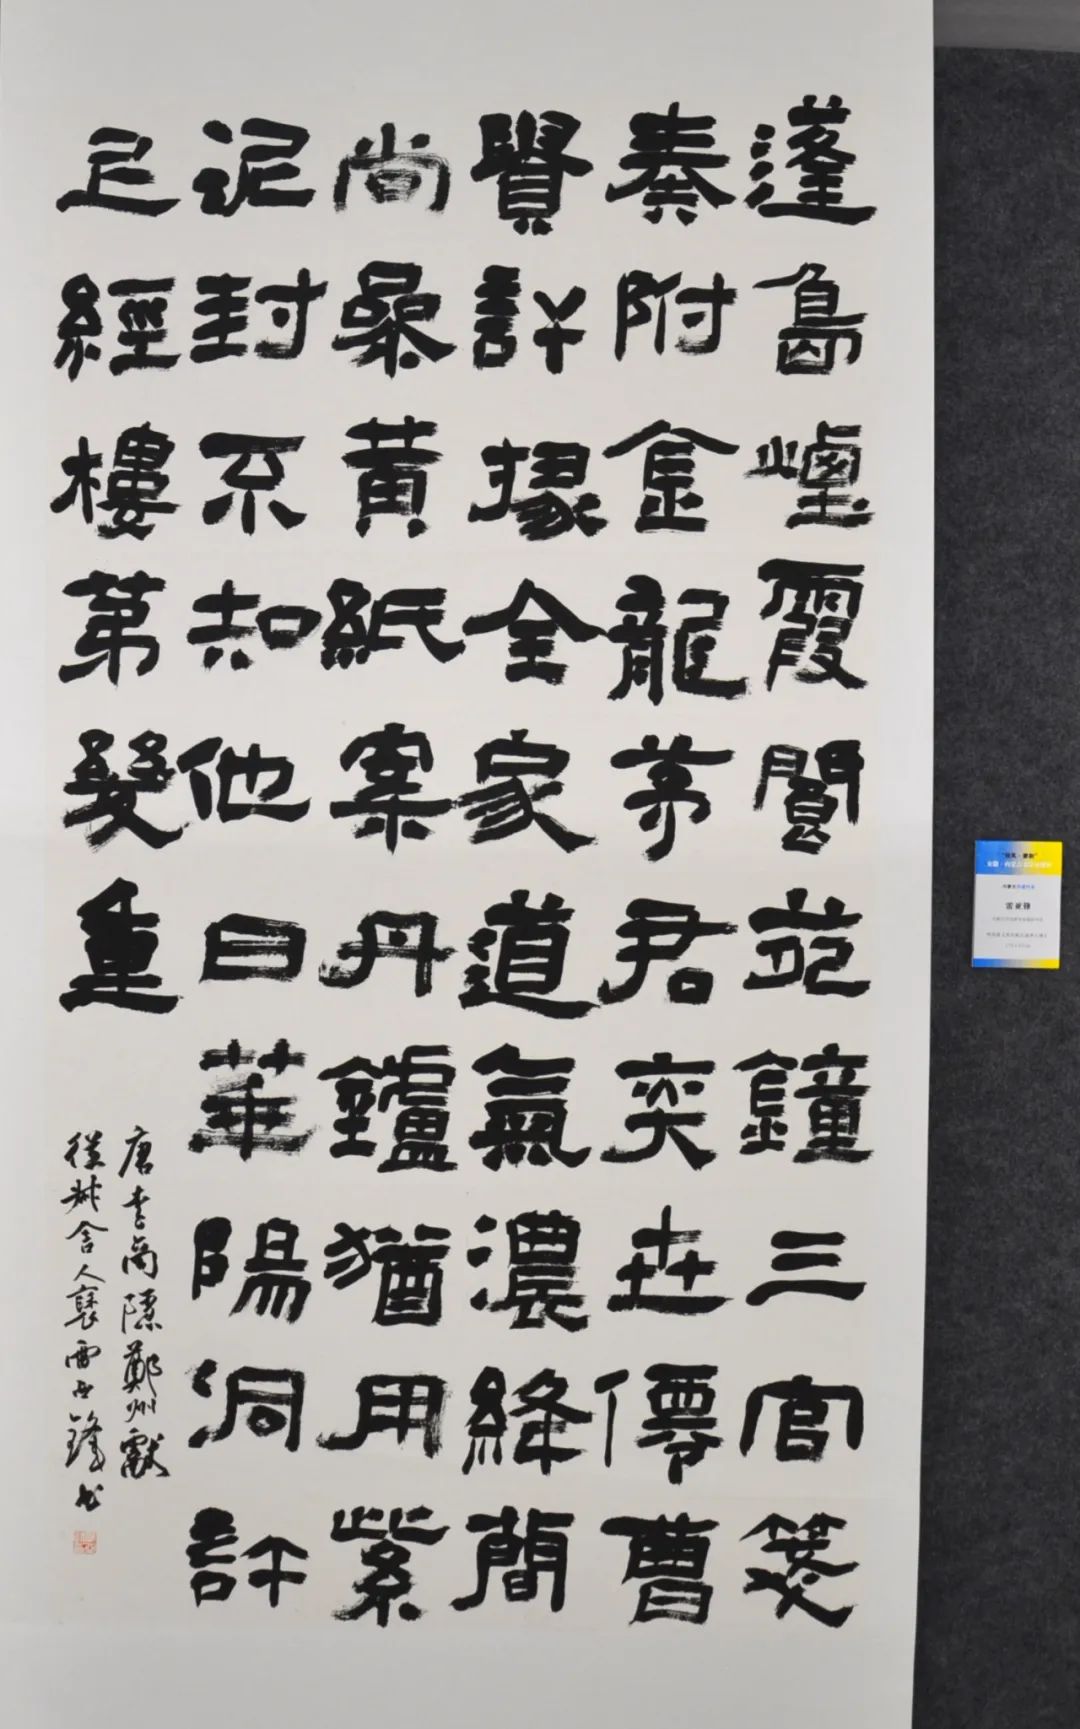 蓬島煙霞閬苑鐘三官箋
奏附金龍茅君奕世僊曹
賢許掾全家道氣濃絳簡
尚參黃紙案丹鑪猶用紫
泥封不知他日華陽洞許
足經樓第幾重
唐李商隱鄭州獻
從叔舍人褎雷亞鋒書